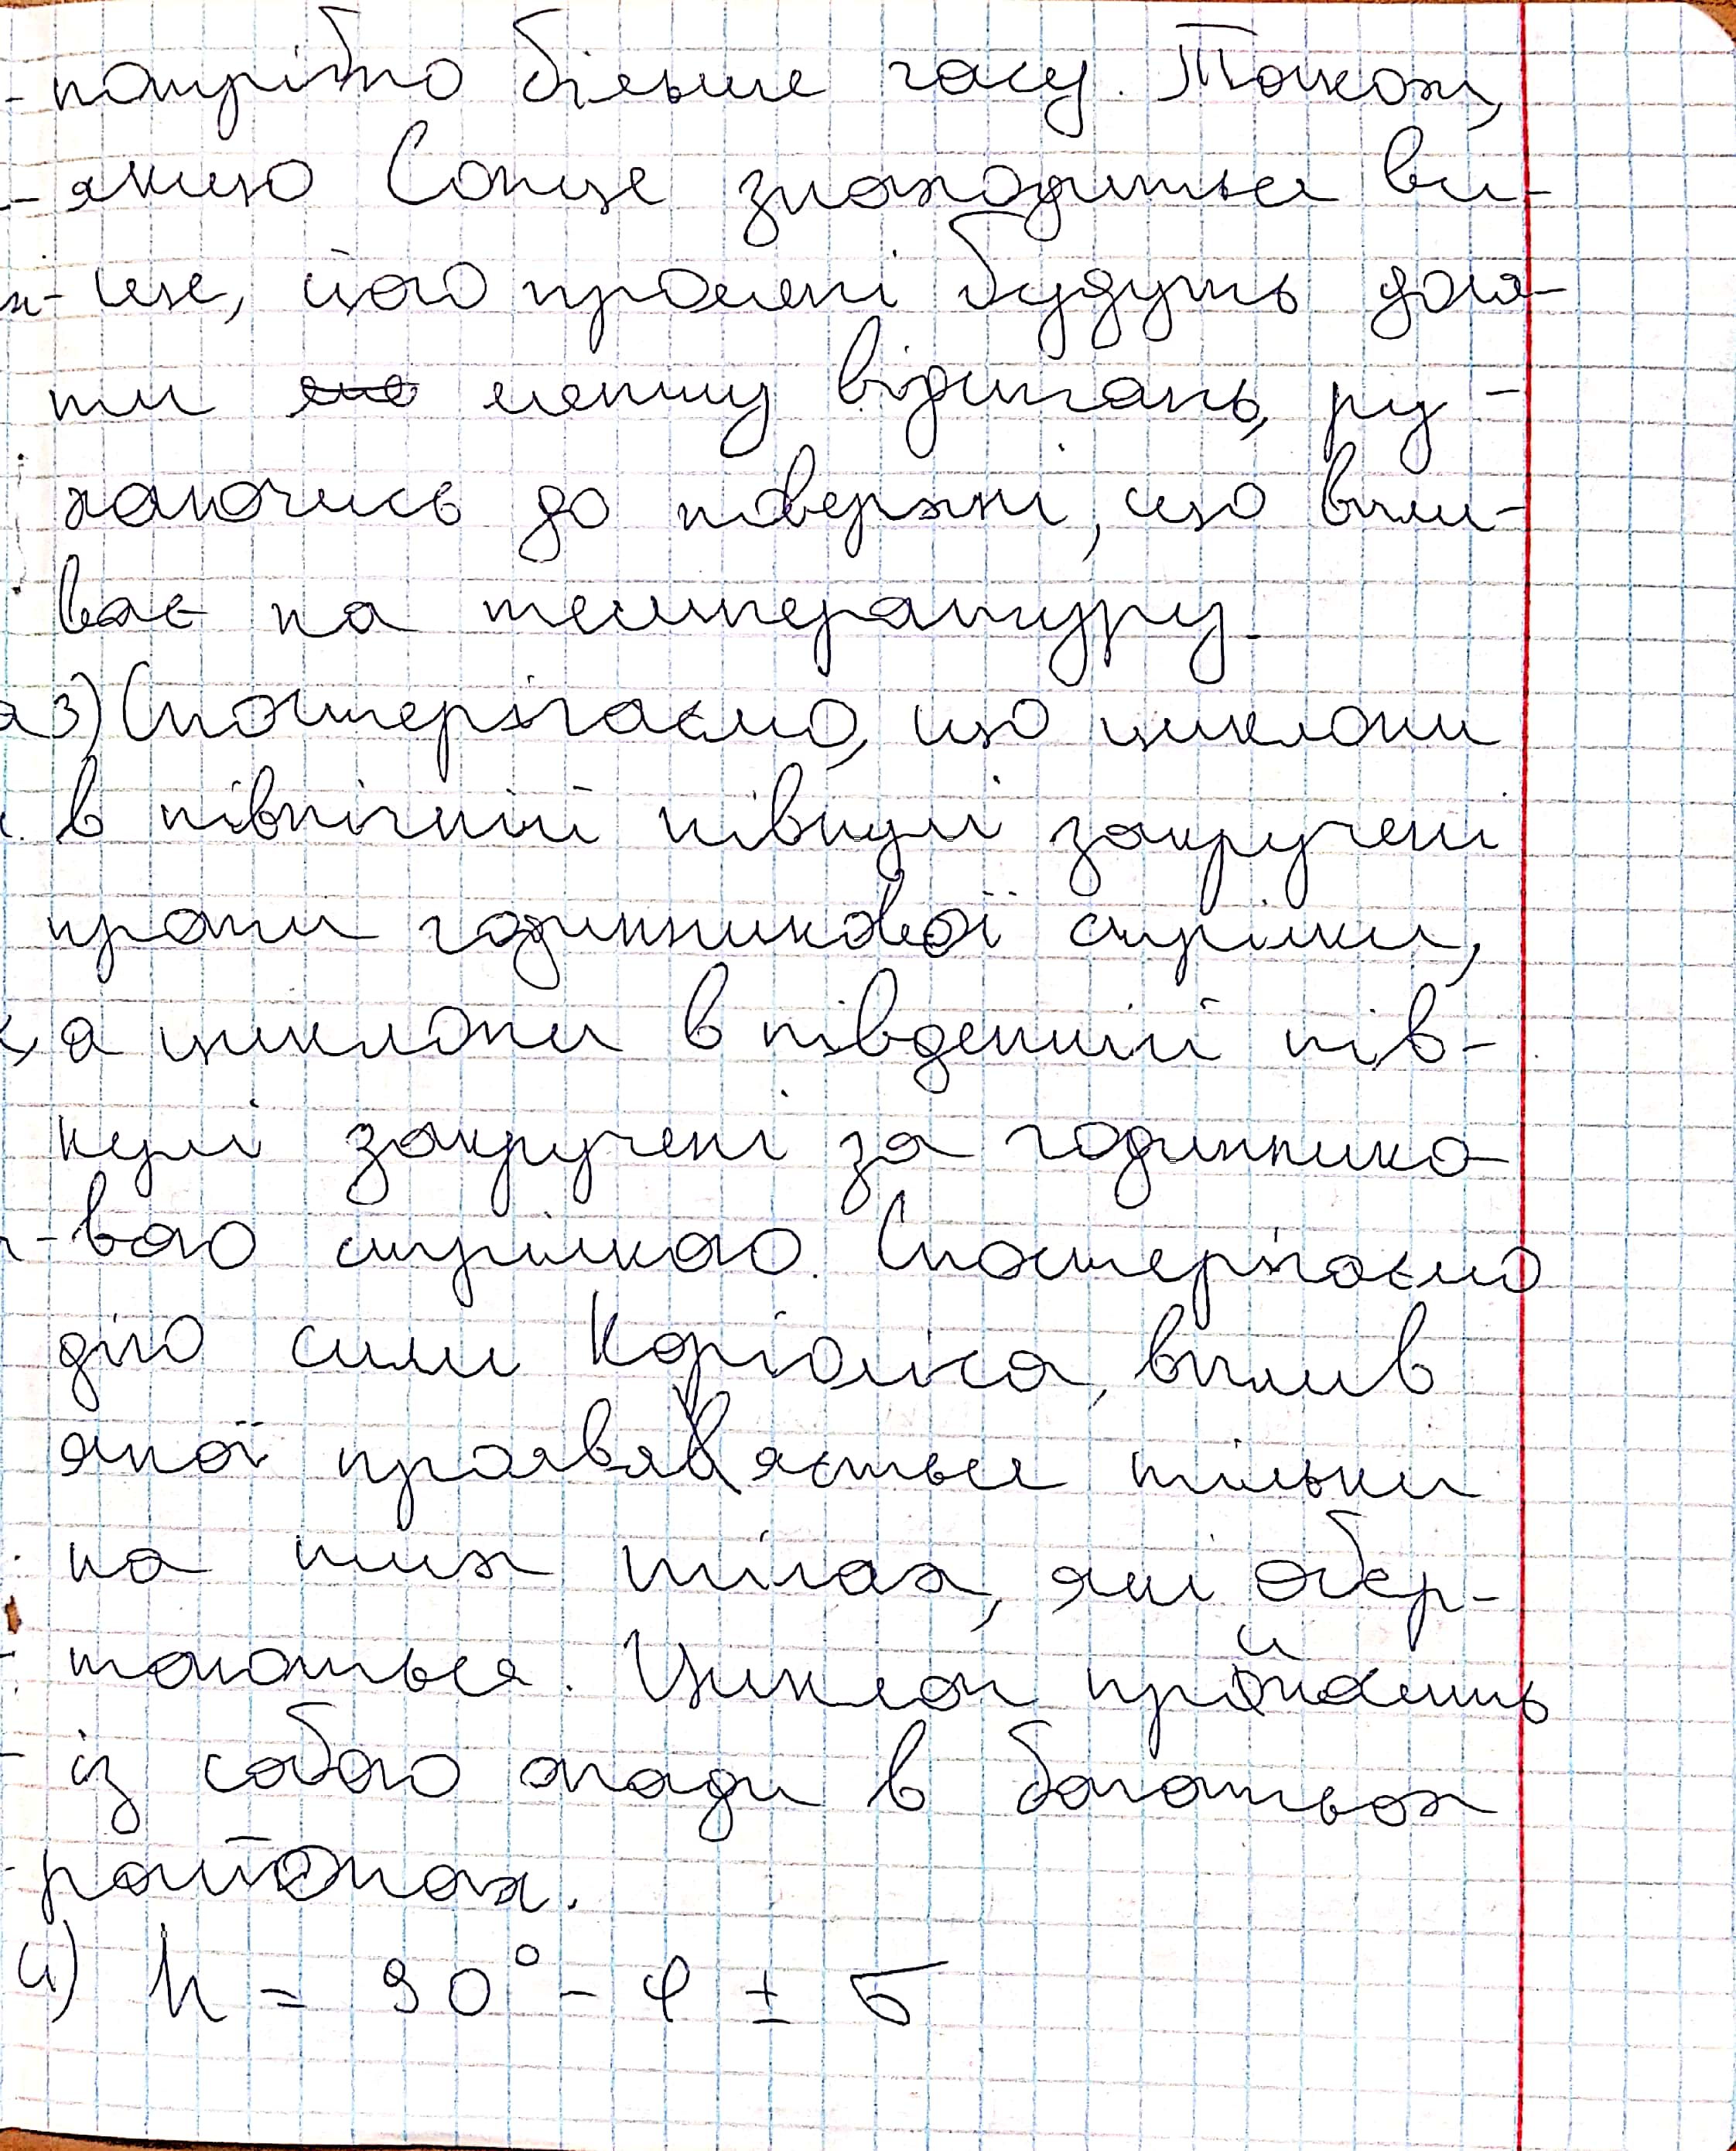 потрібно більше часу. Також,
якщо Сонце знаходиться ви-
ще, його промені будуть дола-
ти меншу відстань, ру-
хаючись до поверхні, що впли-
ває на температуру.
3) Спостерігаємо, що циклони
в північній півкулі закручені
проти годинникової стрілки,
а циклони в південній пів-
кулі закручені за годиннико-
вою стрілкою. Спостерігаємо
дію сили Коріоліса, вплив
якої проявляється тільки
на тих тілах, які обер-
таються. Циклон
із собою опади в багатьох
районах.
4) h = 90° - φ ± б